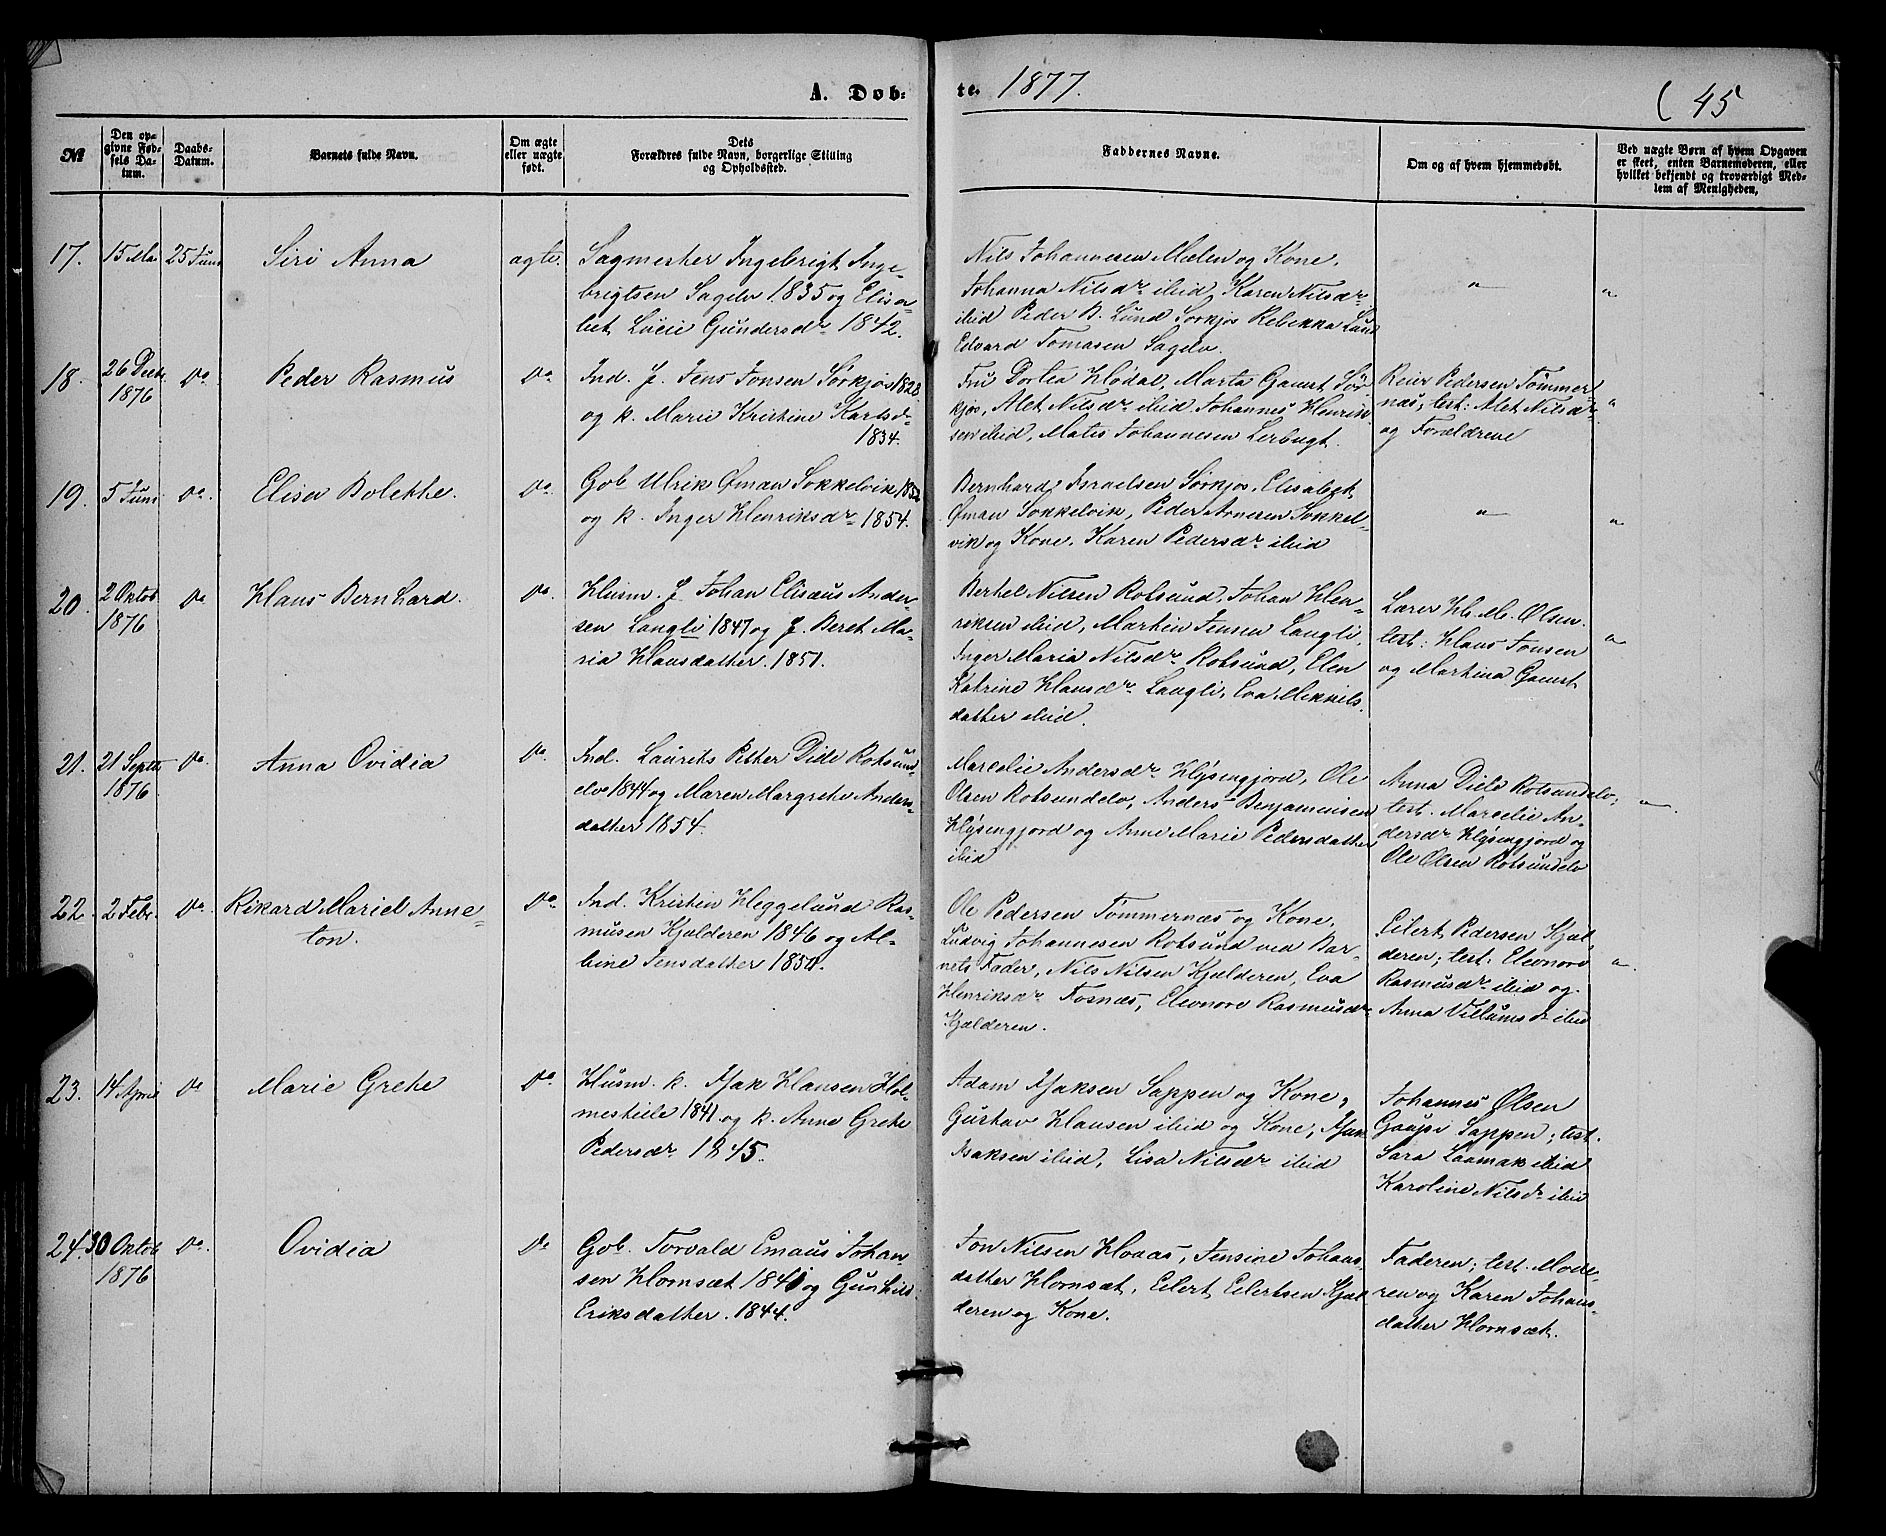 A. Døb=
te. 1877.
( 45
№
Den op=
givne Fød=
sels Da=
tum.
Daabs=
Datum.
Barnets fulde Navn.
Om ægte
eller uægte
født.
Dets
Forældres fulde Navn, borgerlige Stilling
og Opholdssted.
Faddernes Navne.
Om og af hvem hjemmedøbt.
Ved uægte Børn af hvem Opgaven
er skeet, enten Barnemoderen, eller
hvilket bekjendt og troværdigt Med=
lem af Menigheden.
17.
15 Mai
25 Juni
Siri Anna
ægte.
Sagmester Ingebrigt Inge=
brigtsen Sagelv 1835 og Elisa=
bet Lucie Gundersdr 1842.
Nils Johannesen Mælen og Kone,
Johanna Nilsdr ibid, Karen Nilsdr
ibid Peder B. Lund Sørkjos Rebekka Lund
Edvard Tomasen Sagelv.
"
"
18.
26 Decbr.
1876
Do
Peder Rasmus
Do
Ind. J. Jens Jonsen Sørkjos 1828
og k. Marie Kristine Karlsdr
1834.
Fru Dortea Hødal, Marta Gaust Sør=
kjos, Alet Nilsdr ibid Johannes Henrik=
sen ibid, Matis Johannesen Lerbugt.
Reier Pedersen Tømmer=
næs; test: Alet Nilsdr
og Forældrene
"
19.
5 Juni
Do
Elisa Bolette.
Do
Gob. Ulrik Øman Sokkelvik 1852
og k. Inger Henriksdr 1854.
Bernhard Israelsen Sørkjos, Elisabet
Øman Sokkelvik, Peder Arnesen Sokkel=
vik og Kone, Karen Pedersdr ibid
"
"
20.
2 Oktob
1876
Do
Hans Bernhard.
Do
Husm. J. Johan Elisæus Ander=
sen Langli 1847 og J. Beret Ma=
ria Hansdatter. 1851.
Bertel Nilsen Rotsund, Johan Hen=
riksen ibid, Martin Jensen Langli,
Inger Maria Nilsdr Rotsund, Elen
Katrine Hansdr Langli, Eva Mikkels=
datter ibid.
Lærer H. M. Olsen.
test: Hans Jonsen
og Martina Gaust
"
21.
21 Septb
1876
Do
Anna Ovidia
Do
Ind. Laurits Petter Dile Rotsund=
elv 1844 og Maren Margrete Anders=
datter 1854.
Marcelie Andersdr Hysengjord, Ole
Olsen Rotsundelv, Anders Benjaminsen
Hysengjord og Anne Marie Pedersdatter
ibid
Anna Dile Rotsundelv;
test. Marcelie An=
dersdr Hysengjord og
Ole Olsen Rotsundelv
"
22.
2 Febr.
Do
Rikard Mariel Anne=
ton.
Do
Ind. Kristen Heggelund Ras=
musen Kjelderen 1846 og Al=
bine Jensdatter 1850.
Ole Pedersen Tømmernæs og Kone,
Ludvig Johannesen Rotsund ved Bar=
nets Fader, Nils Nilsen Kjelderen, Eva
Henriksdr Fosnæs, Eleonore Rasmusdr
Kjelderen.
Eilert Pedersen Kjel=
deren; test: Eleonore
Rasmusdr ibid og
Anna Villumsdr ibid
"
23.
14 April
Do
Marie Grete
Do
Husm. k. Isak Hansen Hol=
mestiile 1841 og k. Anne Grete
Pedersdr 1845.
Adam Isaksen Sappen og Kone,
Gustav Hansen ibid og Kone, Isak
Isaksen ibid, Lisa Nilsdr ibid
Johannes Olsen
Gaupi Sappen; test.
Sara Laamak ibid
Karoline Nilsdr ibid
24.
30 Oktob
1876
Do
Ovidia
Do
Gob. Torvald Emaus Johan=
sen Hornsæt 1841 og Gunhild
Eriksdatter. 1844.
Jon Nilsen Hovaas, Jensine Johans=
datter Hornsæt, Eilert Eilertsen Kjel=
deren og Kone.
Faderen; test. Mode=
ren og Karen Johans=
datter Hornsæt.